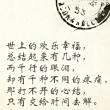 世上的欢乐幸福，
总结起来有几种，
而千行的眼泪，
却有千种不同的疼痛，
那打不开的心结，
只有交给时间去解。